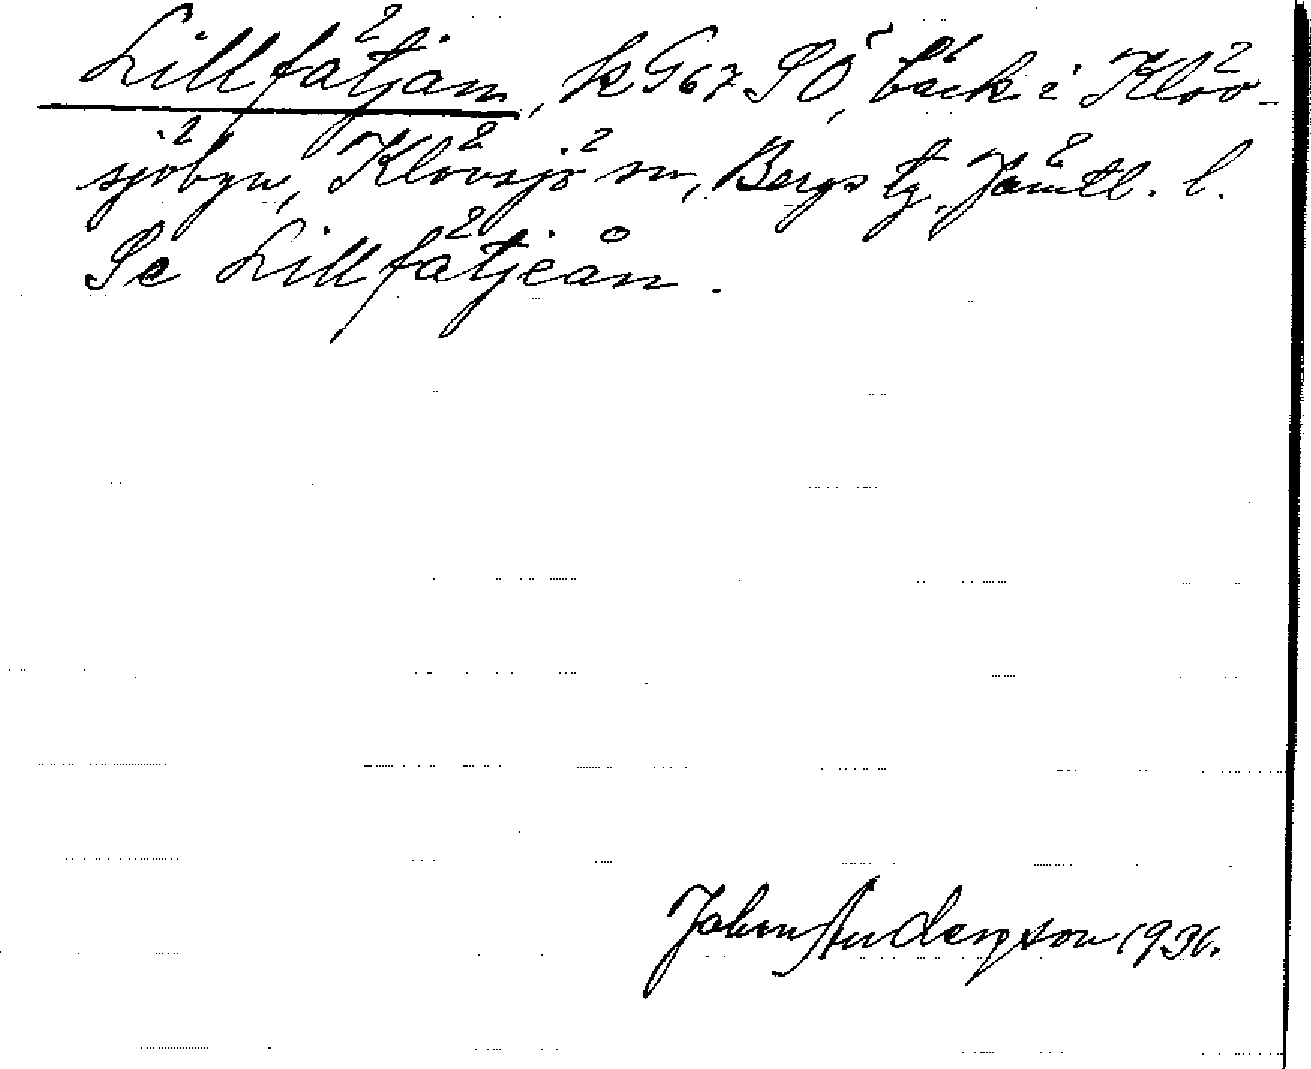 Lillfätjan, k G67 SÖ, bäck i Klöv-
sjöbyn, Klövsjö sn, Bergs tg, Jämtl. l.
Se Lillfätjeån.
John Anderzson 1936.